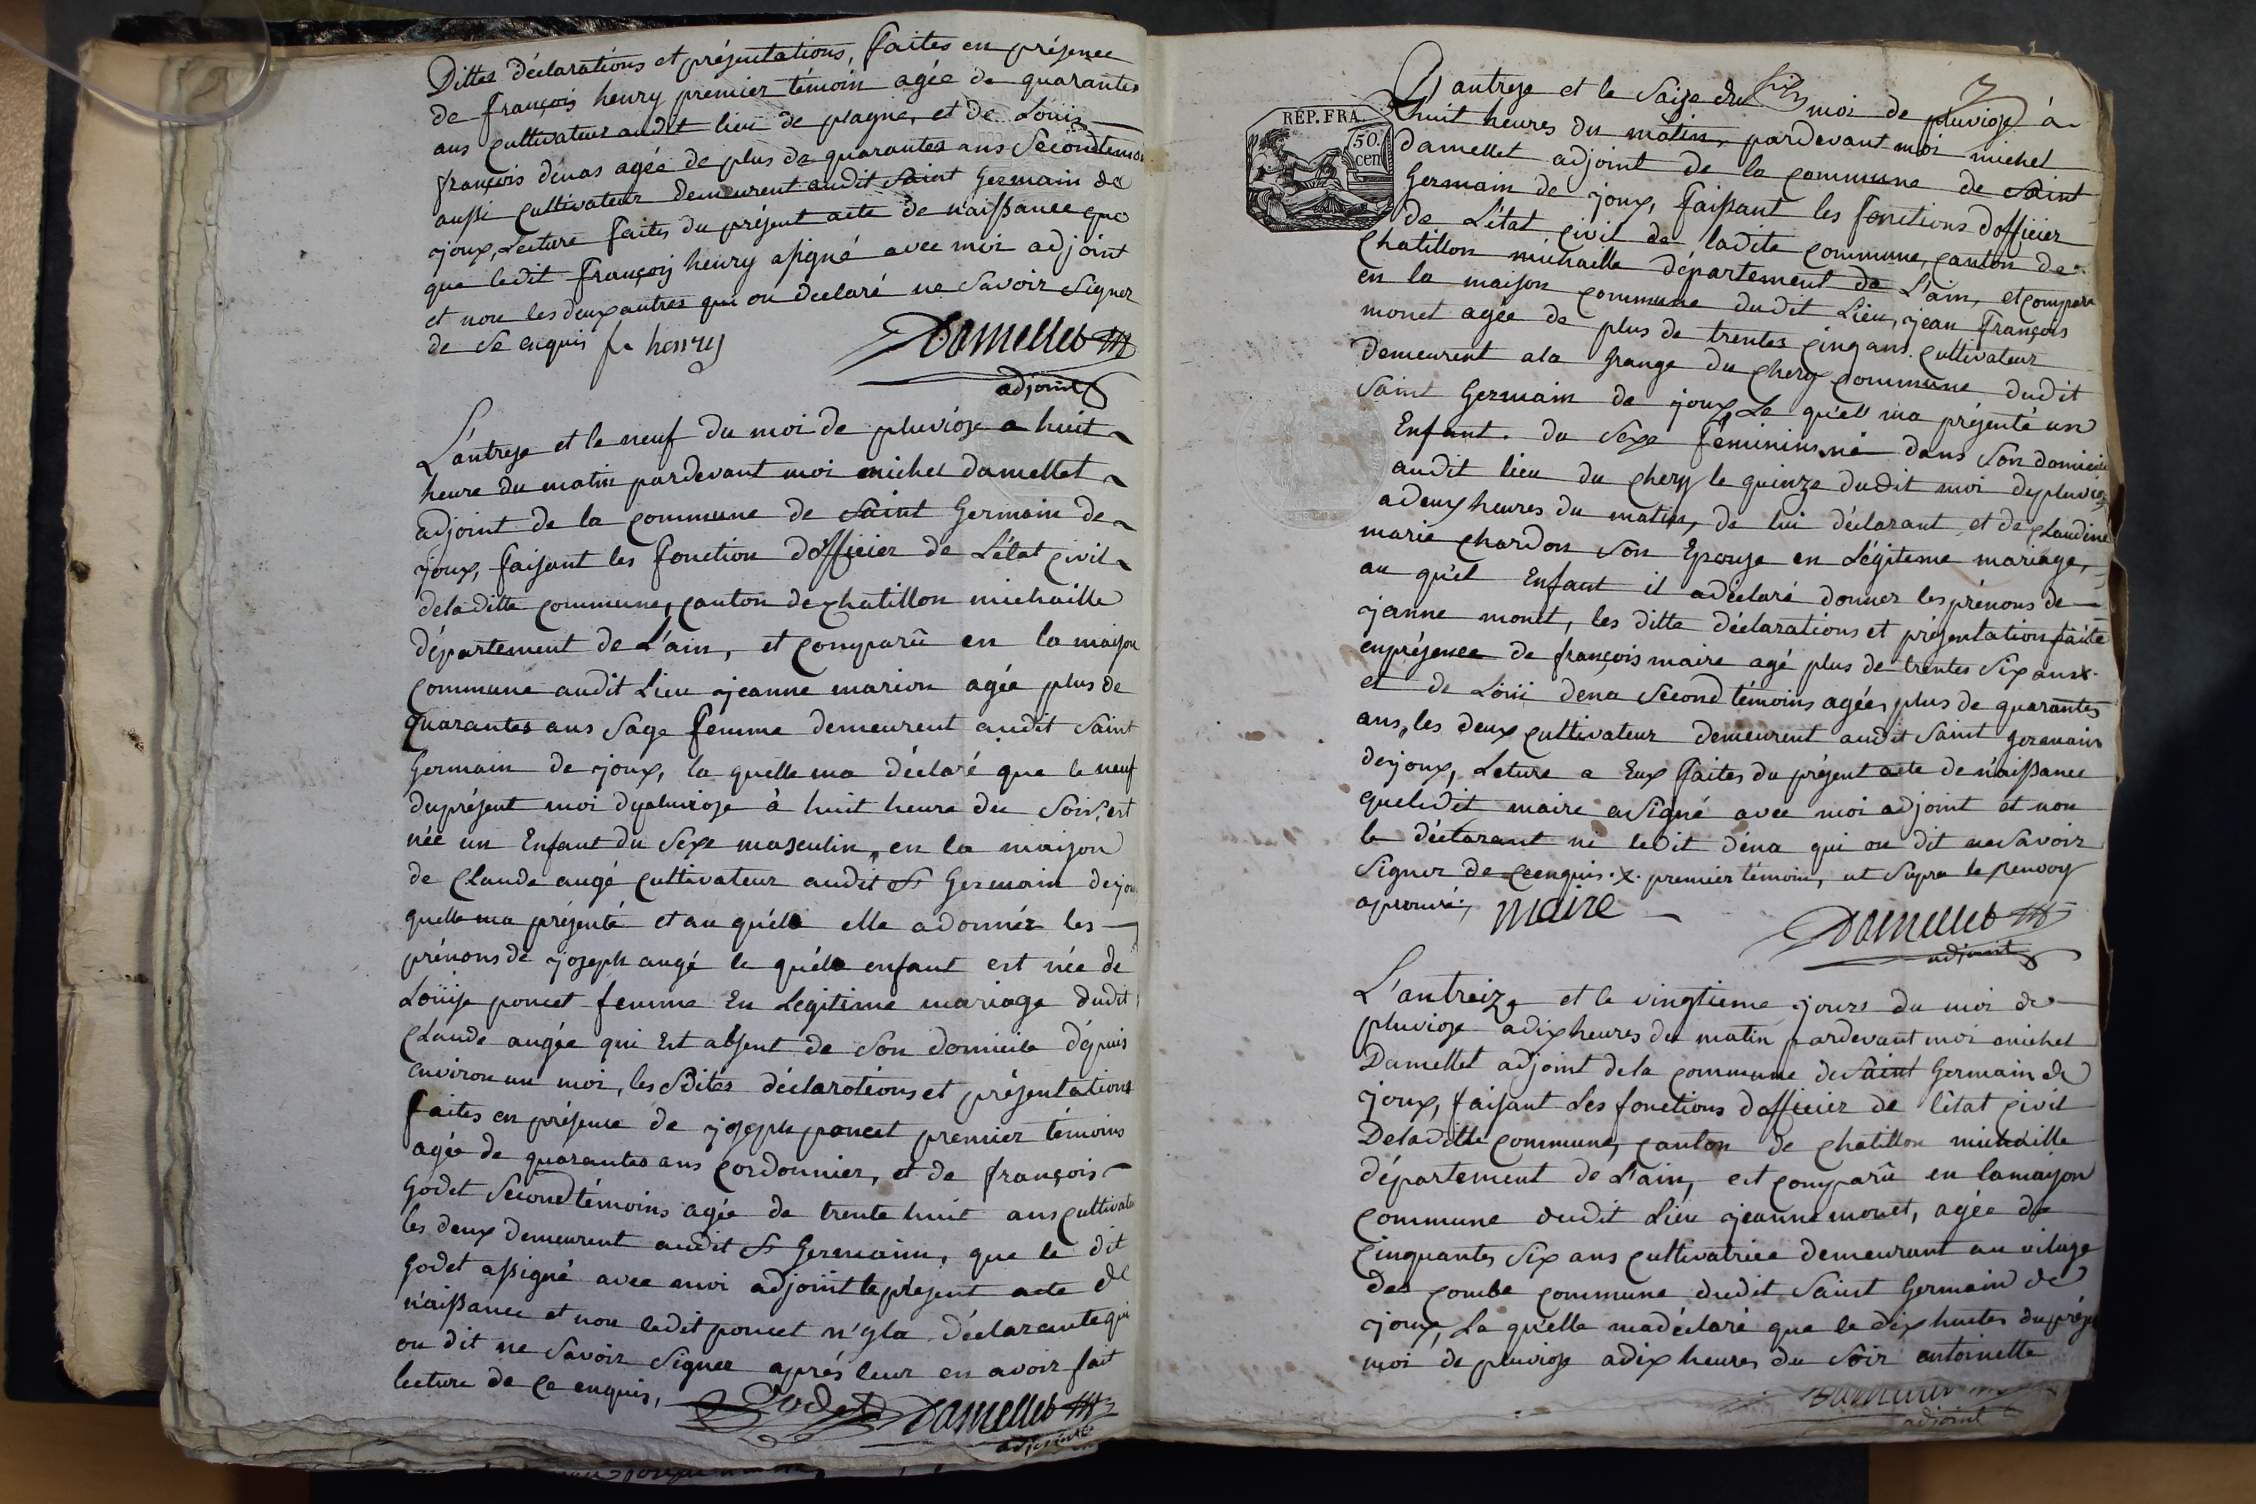 Dittes déclarations et présentations, faites en présence
de françois henry premier témoin agée de quarantes
ans cultivateur audit lieu de plagne, et de Loüis
françois dénas agée de plus de quarantes ans Second temoin
aussi cultivateur demeurent audit Saint Germain de
joux, Lecture faites du présent acte de naissance que
que ledit françois henry asigné avec moi adjoint
et non les deux autres qui on declaré ne Savoir Signer
de Se enquis f. henry
Damellet
adjoint
L'antreze et le neuf du moi de pluviose a huit
heure du matin pardevant moi michel damellet
adjoint de la commune de Saint Germain de
joux, faisant les fonction d'officier de L'état civil
deladitte commune, canton de chatillon michaille
département de L'ain, et comparû en la maison
commune audit Lieu jeanne marion agée plus de
quarantes ans Sage femme demeurent audit Saint
Germain de joux, la quelle ma déclaré que le neuf
duprésent moi dypluviose à huit heure du Soir, est
née un Enfant du Sexe masculin, en la maison
de Claude augé cultivateur audit St Germain dejoux
quelle ma présenté et au quéle elle adonnér les
prénons de joseph augé le quéle enfant est née de
Loüise poncet femme En Legitime mariage dudit
Claude augée qui Est absent de Son domicile dépuis
environ un moi, les Dites déclarations et présentations
faites en présence de joseph poncet premier témoins
agée de quarantes ans cordonnier, et de françois
Godet Second témoins agée de trente huit ans cultivate
les deux demeurent audit St Germain, que le dit
Godet assigné avec moi adjoint le présent acte de
naissance et non ledit poncet n'yla déclarante qui
on dit ne Savoir Signer aprés leur en avoir fait
lecture de ce enquis, Godet Damellet
adjoint
3
Lantreze et le Saize du moi de pluviose à
huit heures du matin, pardevant moi michel
damellet adjoint de la commune de Saint
Germain de joux, faissant les fonctions d'officier
de L'état civil de ladite commune, canton de
Chatillon michaille département de L'ain, et compara
en la maison commune dudit Lieu, jean françois
monet agée de plus de trentes cinq ans cultivateur
demeurent ala grange du chery commune dudit
Saint Germain de joux Le qu'el ma présenté un
Enfant du Sexe féminins né dans Son domicile
audit lieu du chery le quinze dudit moi depluviose
adeux heures du matin, de lui déclarant et de Claudine
marie chardon Son Epouse en Légiteme mariage,
au qu'el Enfant il adéclaré donner les prénons de
janne monet, les ditte déclarations et présentation faite
enprésence de françois maire agé plus de trentes Six ans x
et de Loüi dena Second témoins agées plus de quarantes
ans, les deux cultivateur demeurent audit Saint germain
dejoux, Leture a Eux faites du présent acte de naissance
queledit maire aSigné avec moi adjoint et non
le déclarant ni ledit déna qui on dit ne Savoir
Signer de ceenquis. x. premier témoin, ut Supra le renvoy
aprouvé, maire
Damellet
adjoint
L'antreize et le vingtieme jours du moi de
pluviose adix heures du matin pardevant moi michel
Damellet adjoint dela commune de Saint Germain de
joux, faisant les fonctions dofficier de l'état civil
Deladitte commune, canton de chatillon michaille
département de L'ain, est comparû en lamaison
commune dudit Lieu jeanne monet, agée de
Cinquantes Six ans cultivatrice demeurant au vilage
des combe commune dudit Saint Germain de
joux, La qu'elle madéclaré que le dix huites du prése
moi de pluviose adix heures du Soir antoinette
adjoint
RÉP. FRA.
50.
cen